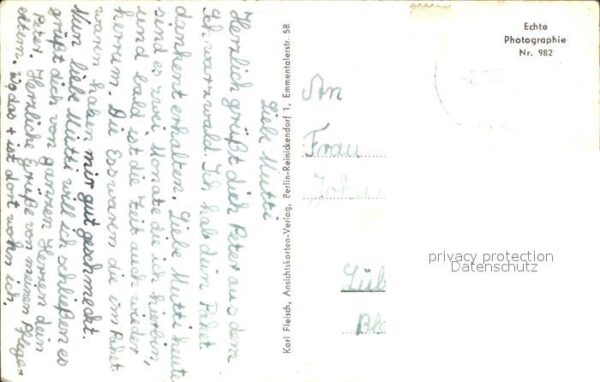 Liebe Mutti
Herzlich grüßt dich Peter aus dem
Schwarzwald. Ich hab dein Paket
dankent erhalten. Liebe Mutti heute
sind es zwei Monate die ich hierbin,
und bald ist die Zeit auch wieder
herrum. Die Esswaren die im Paket
waren haben mir gut geschmeckt.
Nun liebe Mutti will ich schließen es
grüßt dich von ganzen Herzen dein
Peter. Herzliche Grüße von meinen Pflege-
eltern. wo das + ist dort wohn ich.
Karl Fleisch, Ansichtskarten-Verlag, Berlin-Reinickendorf 1, Emmentalerstr. 58
Echte
Photographie
Nr. 982
An
Frau
Lüb
privacy protection
Datenschutz